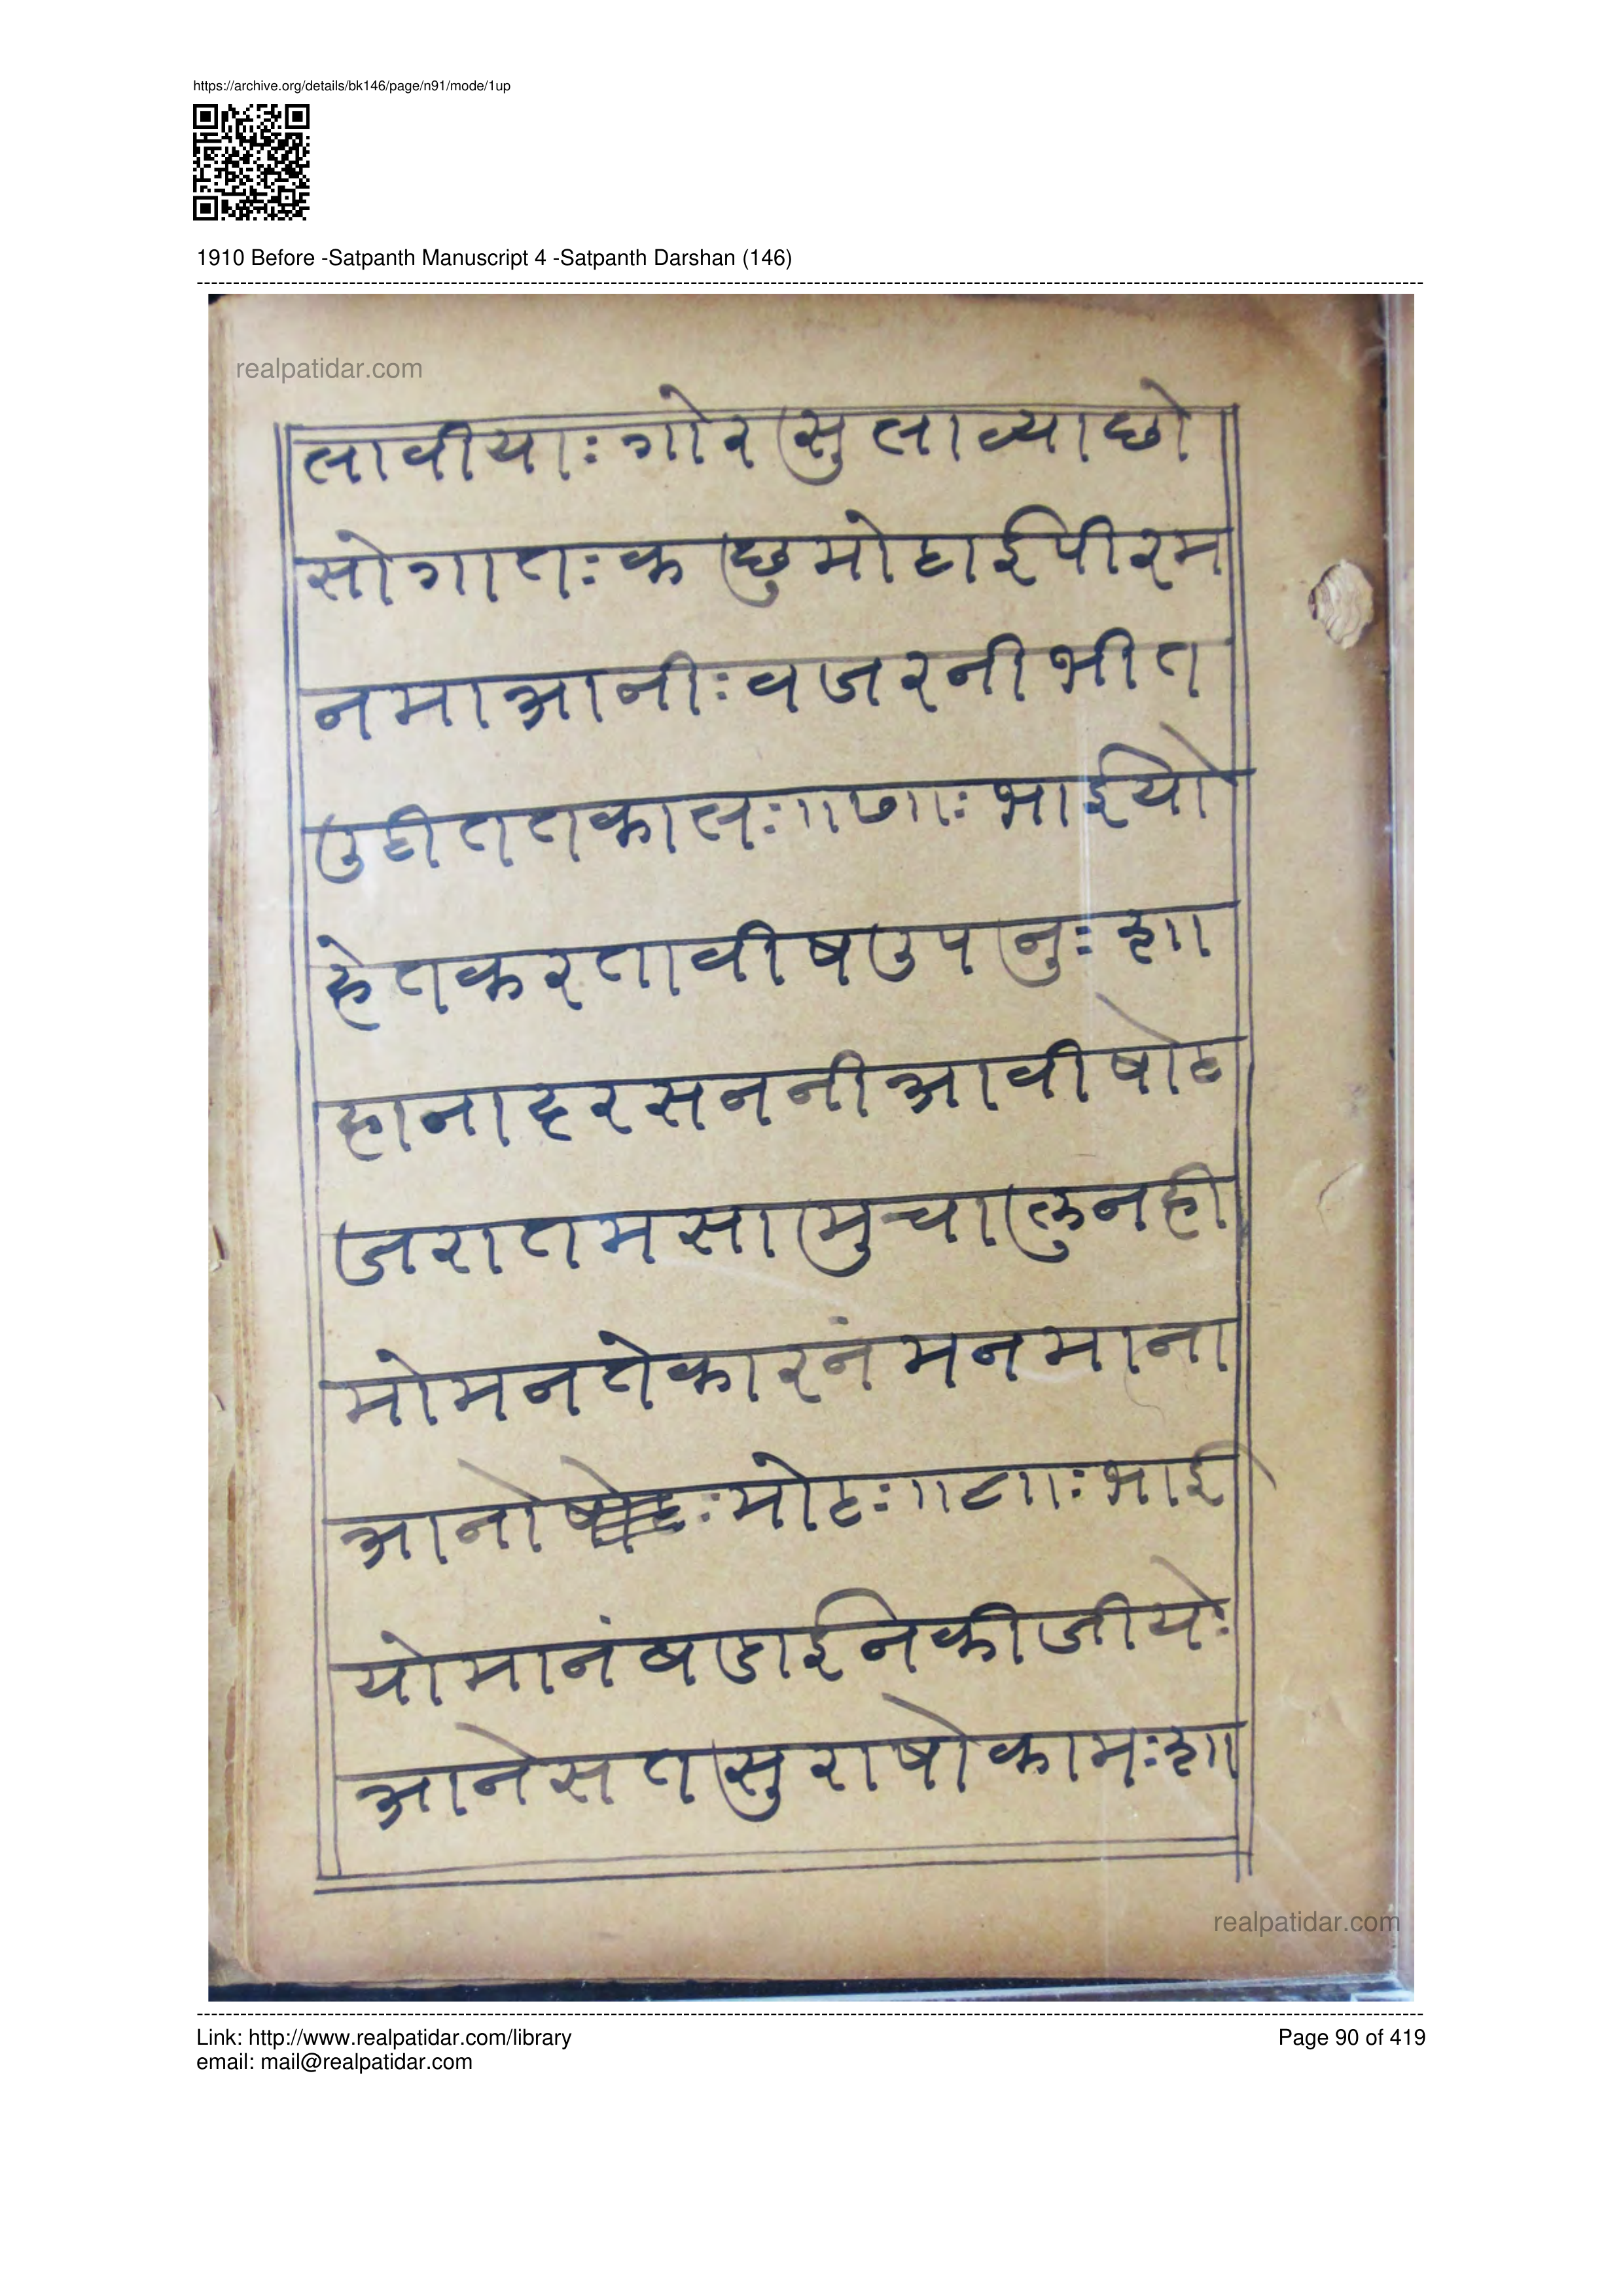 https://archive.org/details/bk146/page/n91/mode/1up
1910 Before -Satpanth Manuscript 4 -Satpanth Darshan (146)
realpatidar.com
लावीयाः गोर सु लाव्या छो
सोगातः क छु मोटाई पीरम
नमाआनीः वजरनी भीत
उठी ततकालः ॥७॥ः भाईयो
हेत करता वीष उप नुः शा
हाना दरसननी आवी षोट
जरा तम सा मु चा लु नही
मोमन ते कारनं मन माना
आनो मोटः ॥८॥ः भाई
यो मानं बडाई न कीजीयेः
आने सत सु राषो कामः शा
realpatidar.com
Link: http://www.realpatidar.com/library
Page 90 of 419
email: mail@realpatidar.com